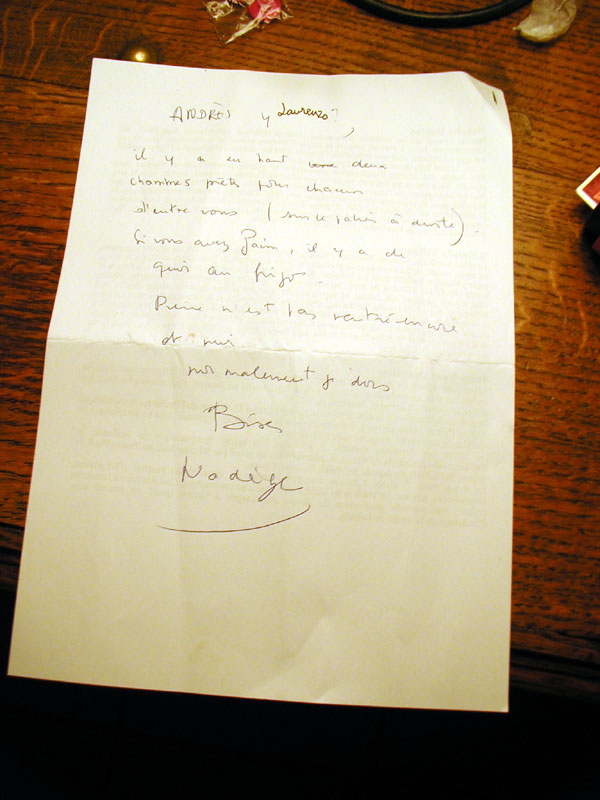 ANDRÈS y Laurenzo?,
il y a en haut deux
chambres prêts pour chacun
d'entre vous (sur le palier à droite).
Si vous avez faim, il y a de
quoi au frigo.
Pierre n'est pas rentré encore
et moi
normalement je dors
Bises
Nadège